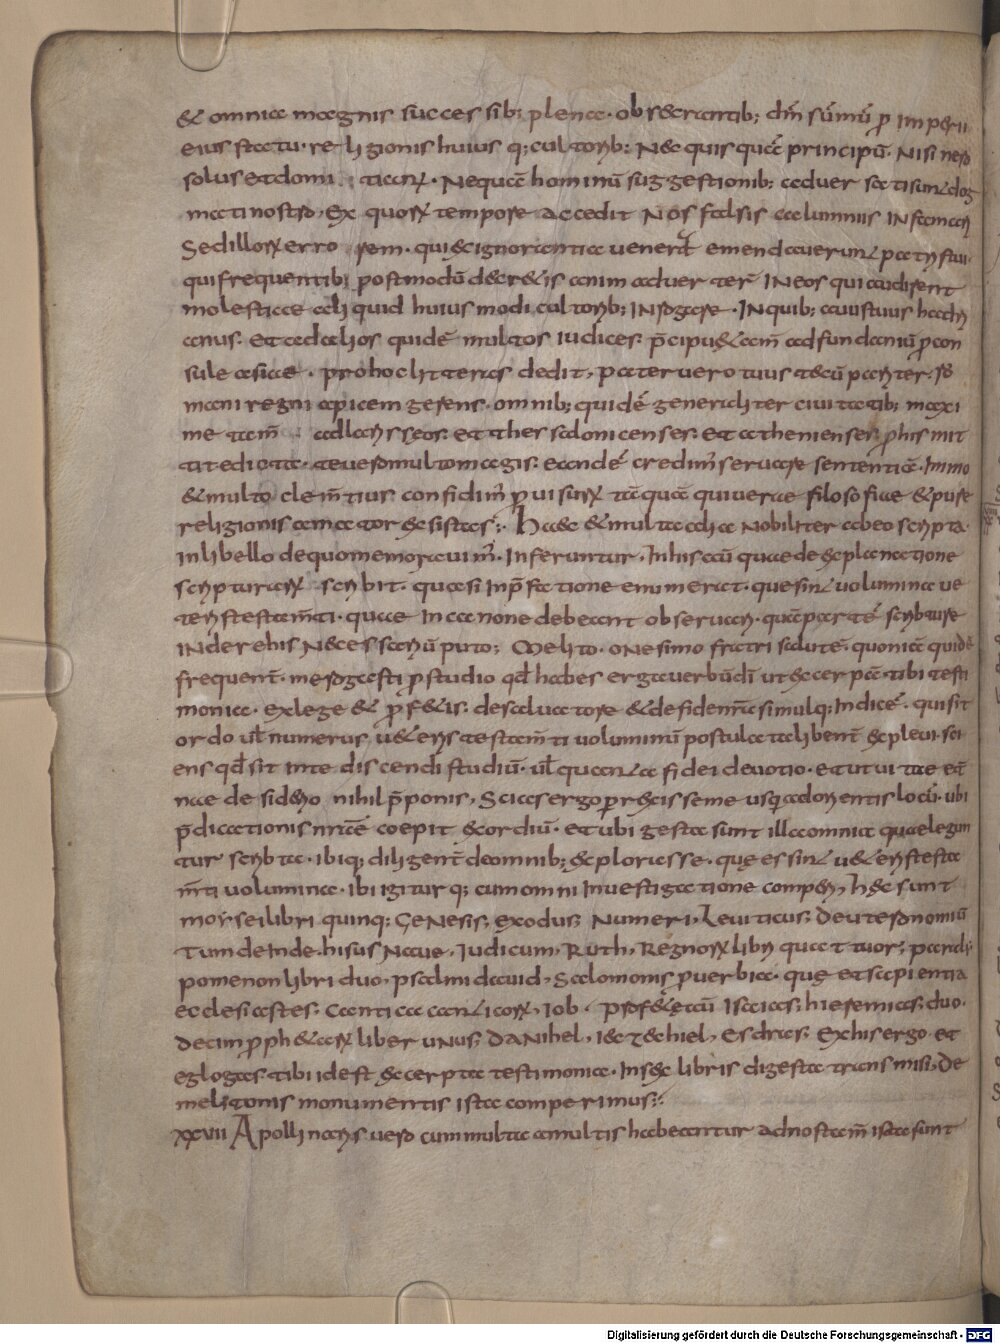 & omnia magnis successib; plena. obsecrantib; dm̄ sūmū p imperii
eius statu. religionis huius q; cultorib; Nec quisquā principū. Nisi nero
solus et domi tianꝰ. Nequā hominū suggestionib; aduersati sunt dog
mati nostro, Ex quoꝝ tempore accedit Nos falsis calumniis INfamari
Sed illoꝝ erro rem. qui ex ignorantia venerat emendaverunt patris tui.
qui frequentib; postmodū decretis animaduerterē INeos qui auderent
molestiae aliquid huiusmodi cultorib; INrogare. INquib; avus tuus hadri
anus. Et ad alios quidē multos iudices. p̄cipue & etiam ad fundaniū p con
sule asiae. pro hoc litteras dedit, pater vero tuus tecū pariter. ro
mani regni apicem gerens. omnib; quidē generaliter civitatib; maxi
me tam̄ ad lariseos. Et thessalonicenses. Et athenienses. p his mit
tit edicta. te vero multo magis. eandē credim̄ servare sententiā. Immo
& multo clem̄tius confidim̄ pvisuꝝ tāquā qui verae filosofiae & pure
religionis amator existas:. Haec & multa alia Nobiliter ab eo scripta.
in libello de quo memoravim̄. Inferuntur, In his aū quae de explanatione
scripturaꝝ scribit. quasi Inp̄fatione enumerat. que sint volumina ve
teris testam̄ti. quae In canone debeant observari. quā partē scripture
INderehis Necessariū puto; Melito. oNesimo fratri salutē. quoniā quidē
frequent̄. me rogasti p studio qd̄ habes erga verbū dī ut excerpā. tibi testi
monia. ex lege & p f&is. de salvatore & de fide nr̄a simulq; Indicē. qui sit
ordo ul̄ numerus, v&eris testam̄ti voluminū postulata liben̄t explevi. sci
ens qd̄ sit in te discendi studiū. ul̄ quanta fidei devotio. et ut vitae et̄
nae desiderio nihil p̄ponis, Scias ergo prexisse me usq; ad orientis locū. ubi
p̄dicationis nr̄ae coepit exordiū. et ubi gesta sunt illa omnia quae legun
tur scripta. ibiq; diligent̄ de omnib; explorasse. quę essint v&eris testa
m̄ti volumina. ibi igitur q; cum omni Investigatione comperi, hęc sunt
moysei libri quinq; GeNesis, exodus, Numeri, Leviticus, Deuteronomiū
Tum deInde. hisus Nave, Iudicum, Ruth, Regnoꝝ libri quattuor, parali
pomenon libri duo, psalmi david, Salomonis pverbia. quę et sapientia
ecclesiastes, Cantica canticoꝝ, Iob. prof&ę aū Isaias, hieremias, duo.
decim p ph&aꝝ liber uNus, daNihel, iezechiel, Esdras, Ex his ergo et
eglogas tibi id est excerpta testimonia. In sex libris digesta transmisi, De
melitonis monumentis ista comperimus:.
XXVII Apollinaris vero cum multa a multis habeantur ad nos tam̄ ista sunt
Digitalisierung gefördert durch die Deutsche Forschungsgemeinschaft - DFG